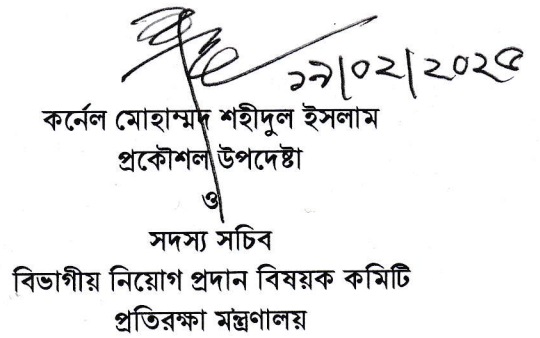 ১৯/০২/২০২৫
কর্নেল মোহাম্মদ শহীদুল ইসলাম
প্রকৌশল উপদেষ্টা
ও
সদস্য সচিব
বিভাগীয় নিয়োগ প্রদান বিষয়ক কমিটি
প্রতিরক্ষা মন্ত্রণালয়